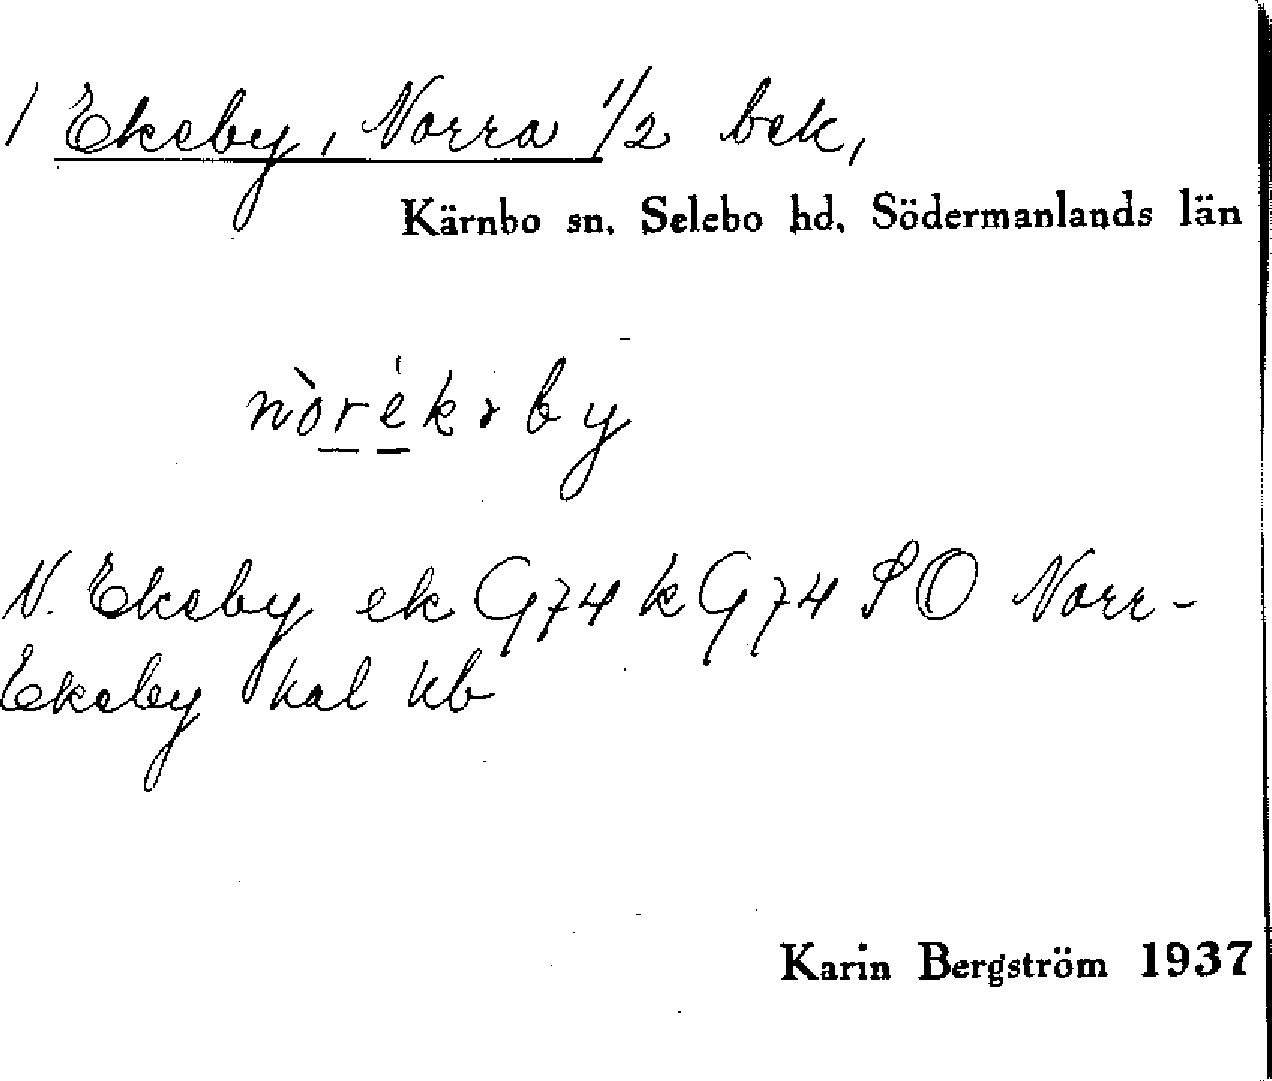 1 Ekeby, Norra 1/2 bek,
Kärnbo sn. Selebo hd. Södermanlands län
N. Ekeby ek G74 k G74 SO Norr-
Ekeby kal kb
Karin Bergström 1937